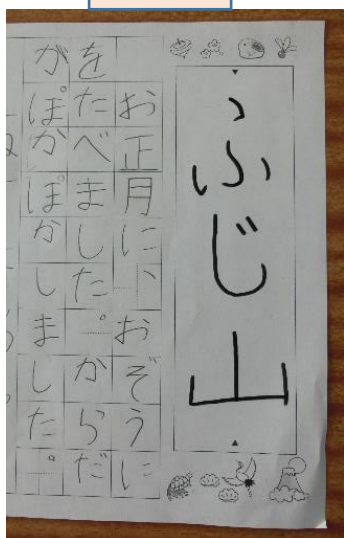 ふじ山
お正月に、おぞうに
をたべました。からだ
がぽかぽかしました。